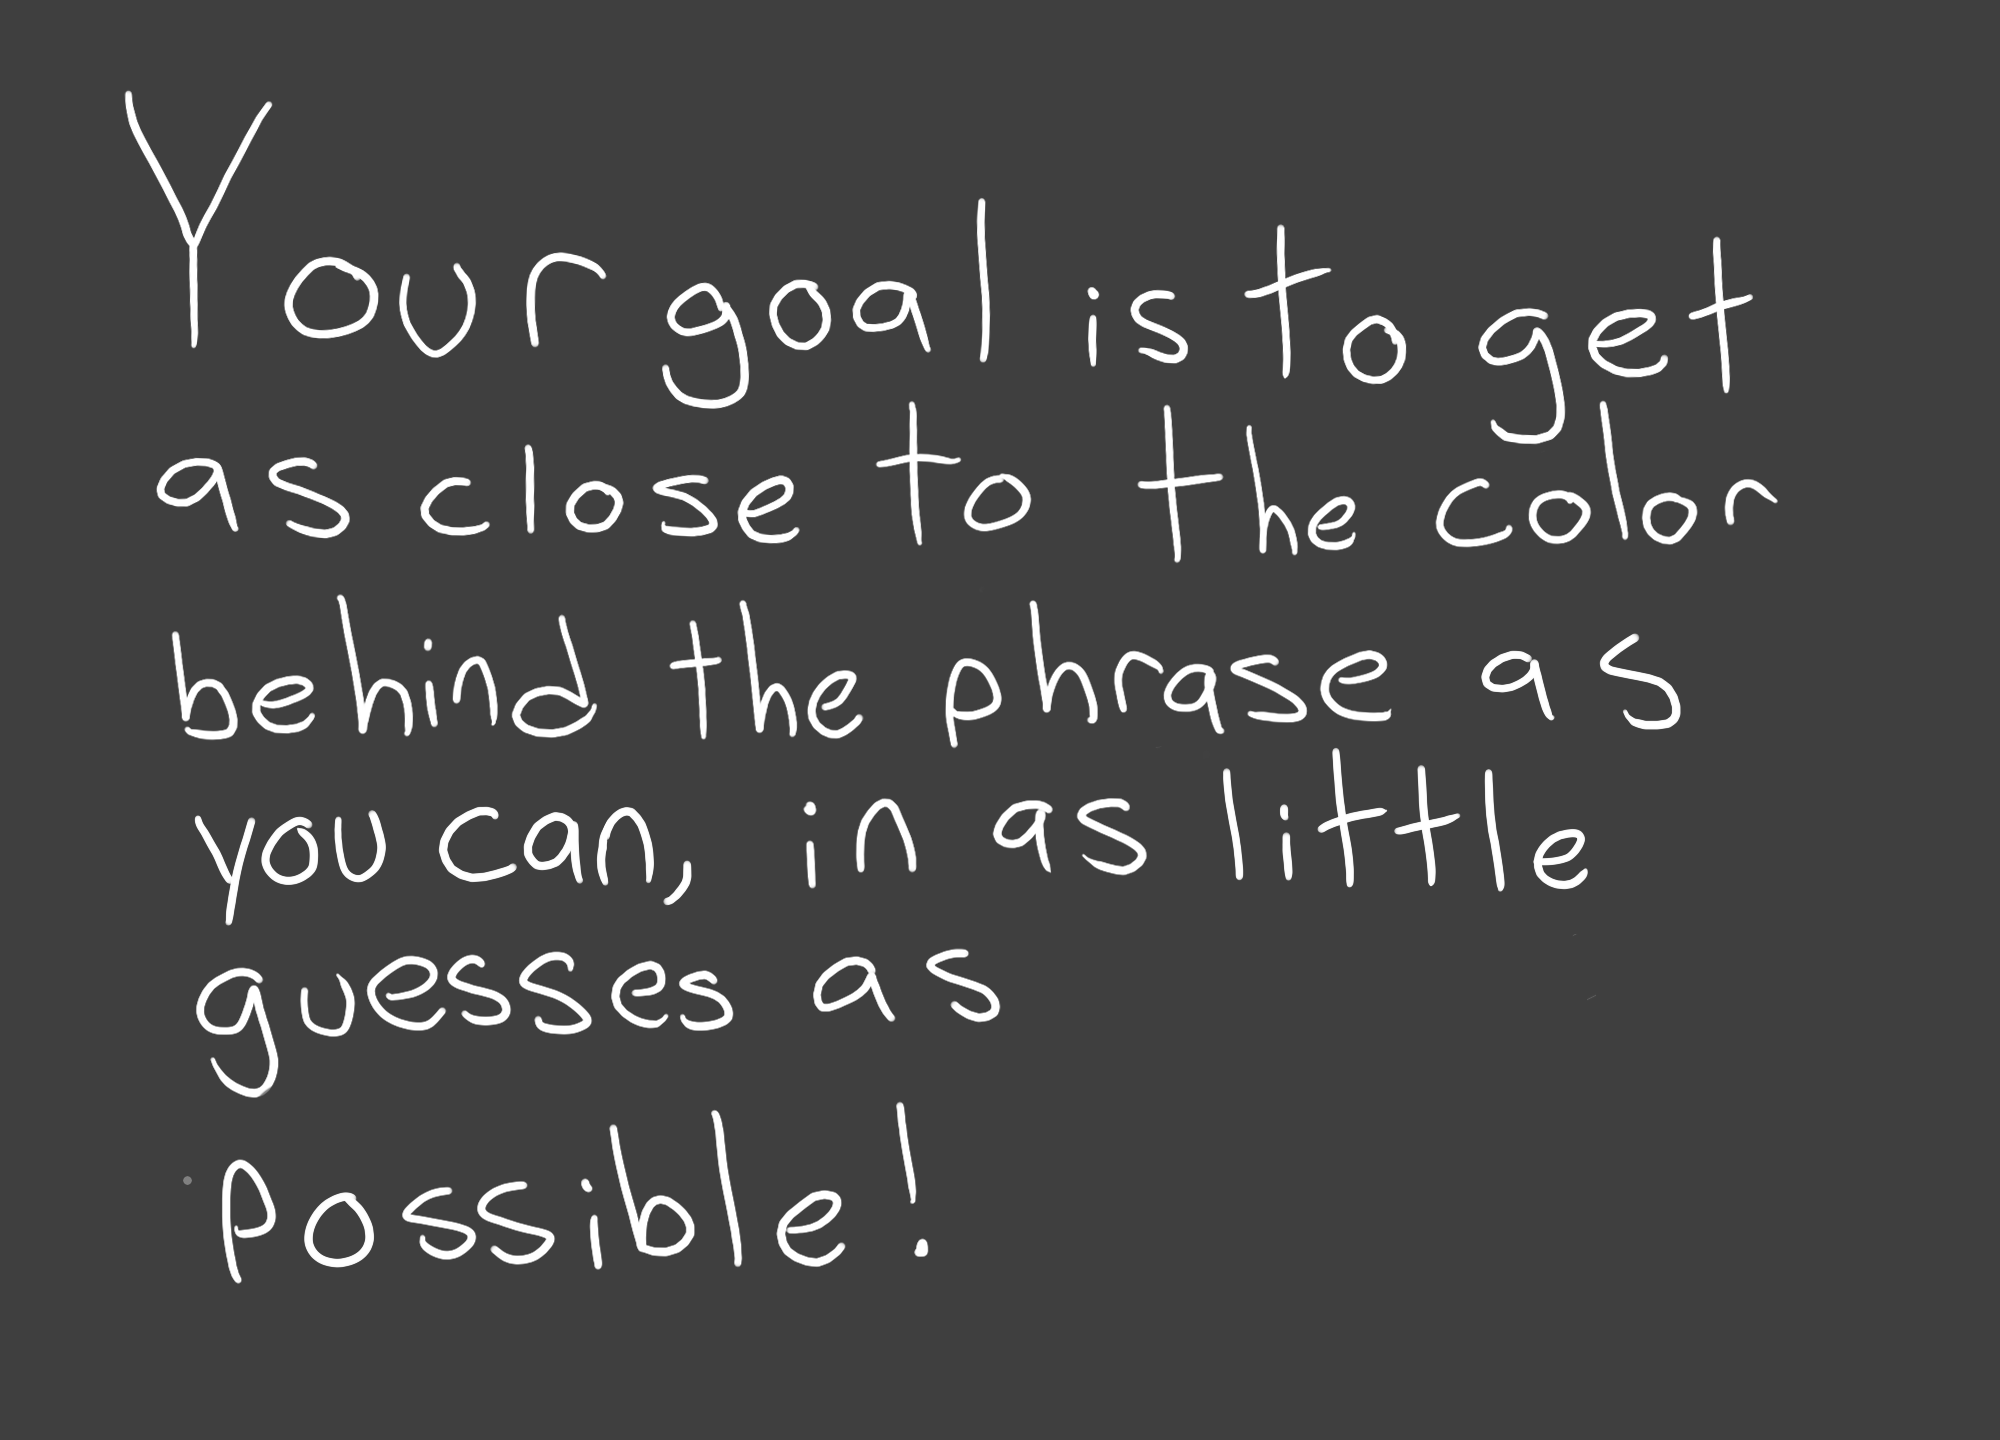 Your goal is to get
as close to the color
behind the phrase as
you can, in as little
guesses as
possible!